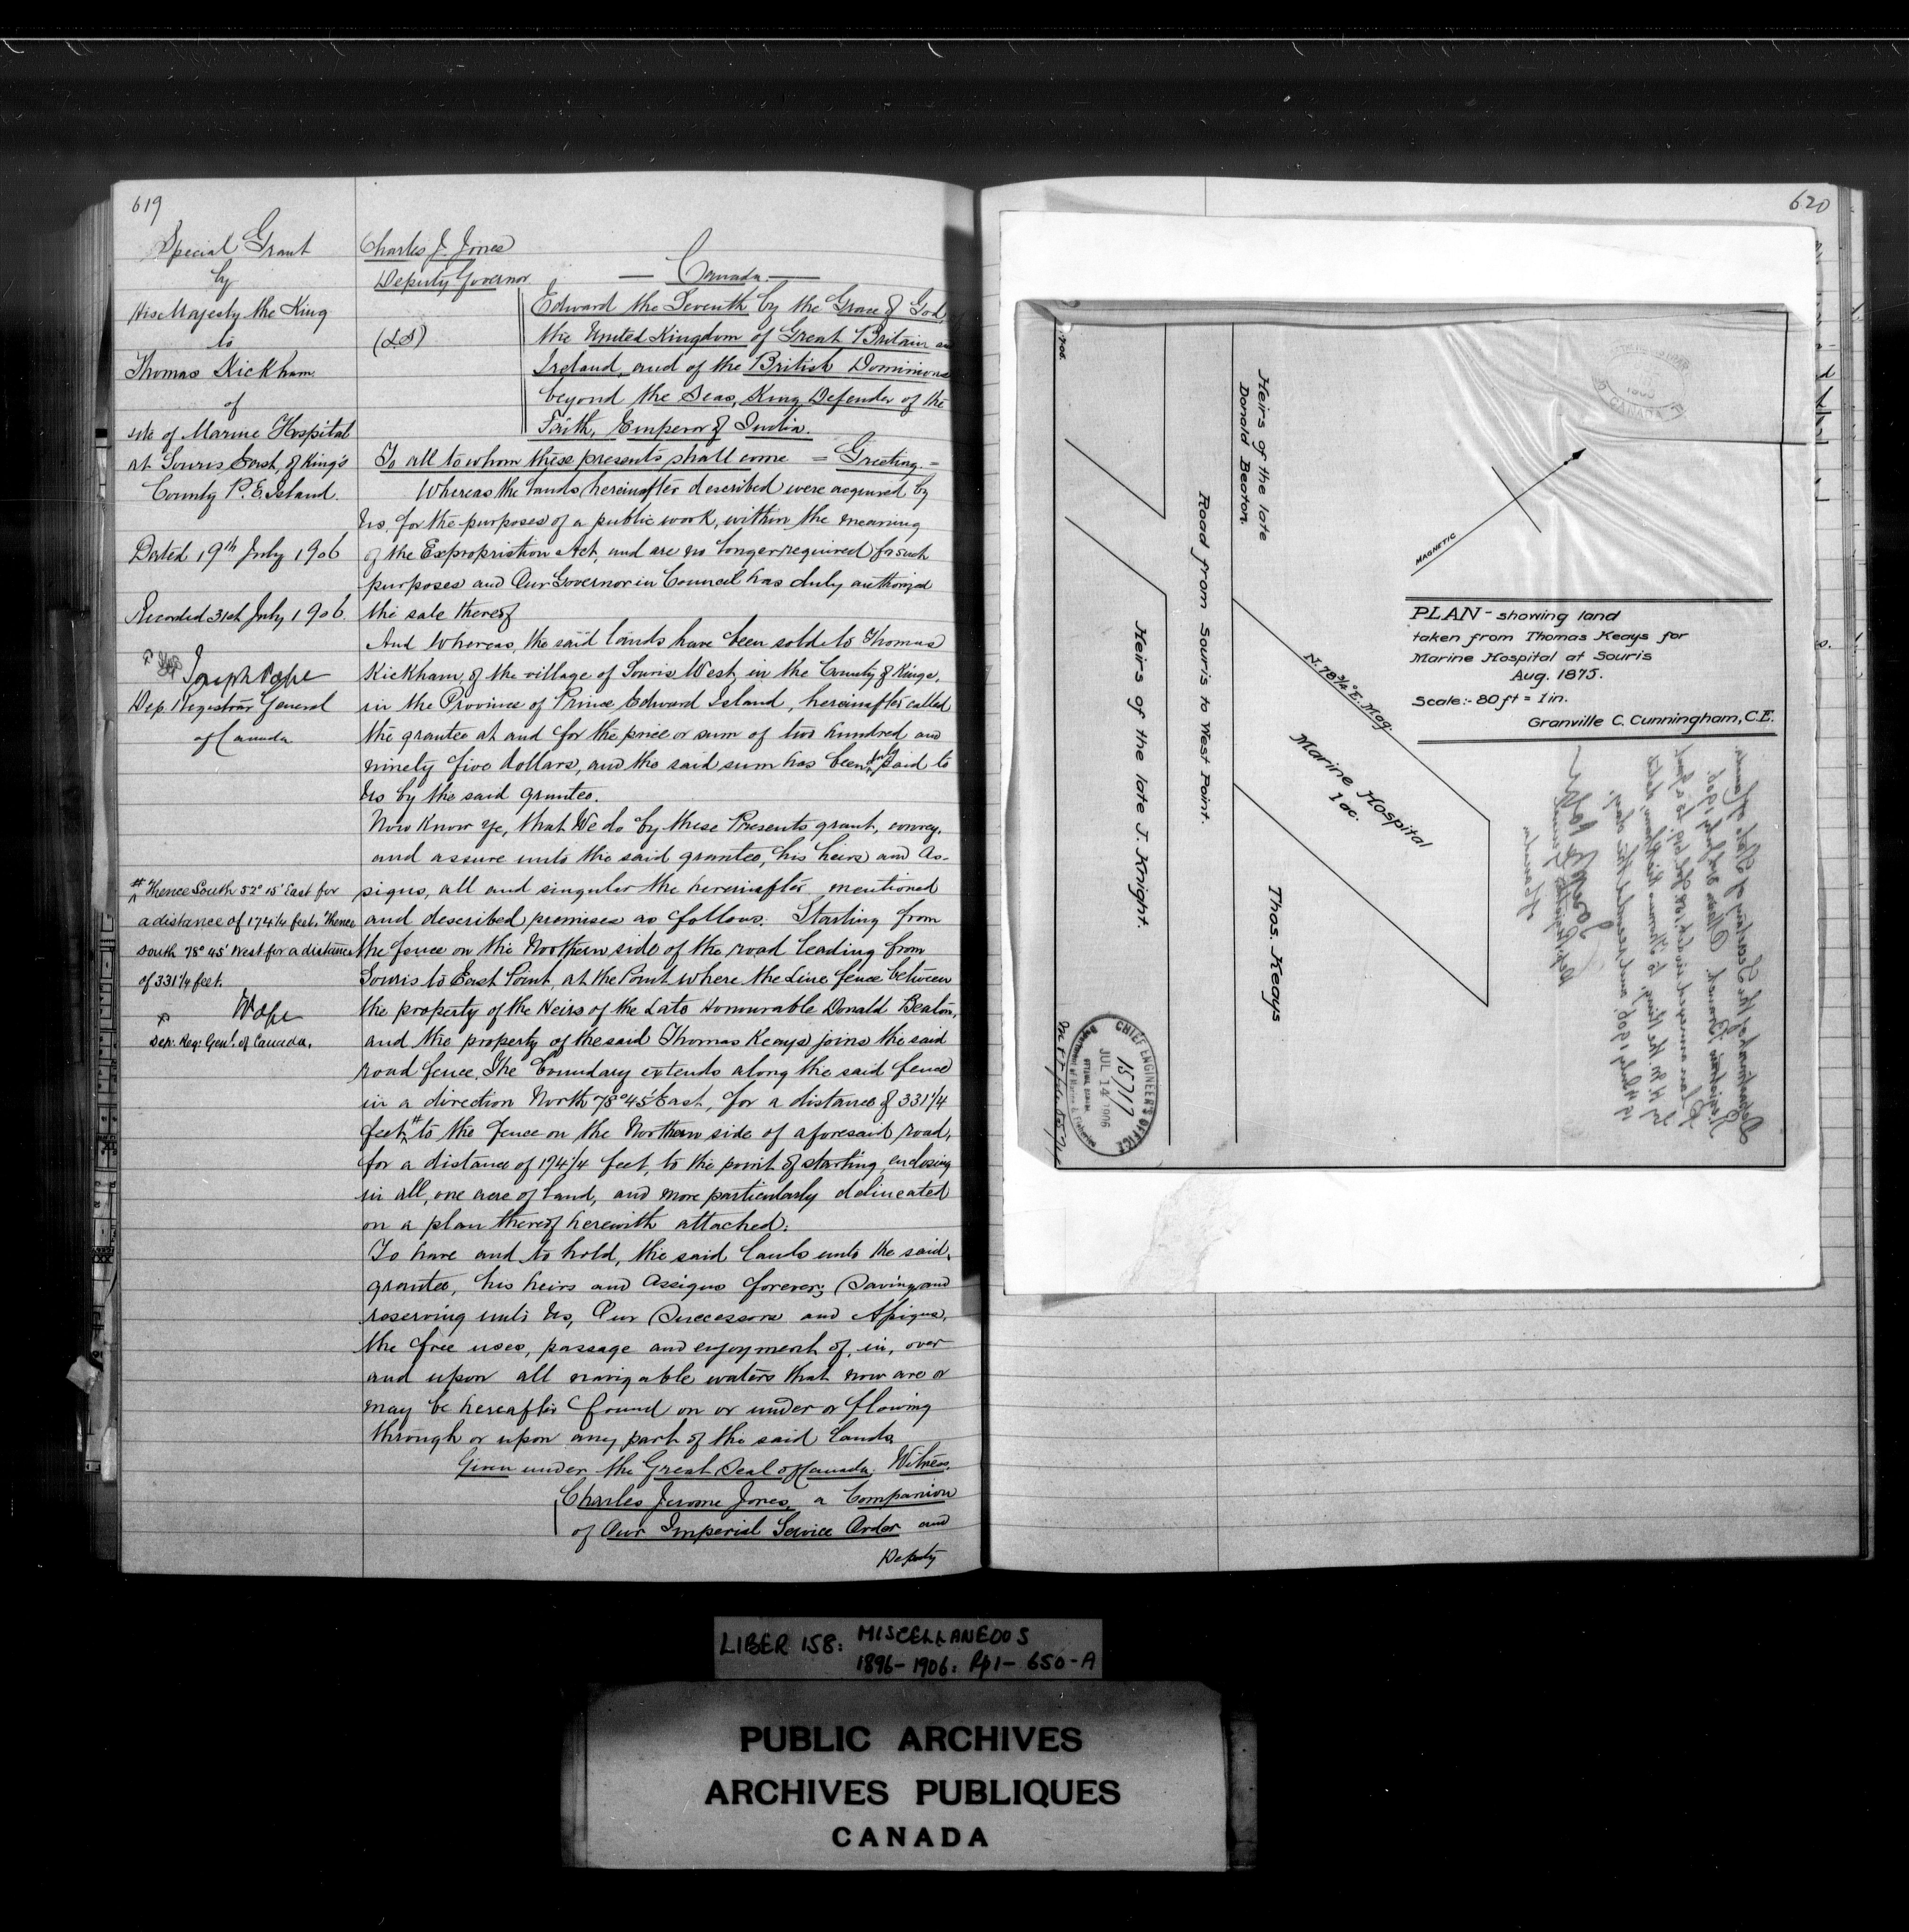 619
Special Grant
by
His Majesty the King
to
Thomas Kickham
of
site of Marine Hospital
at Souris East, of King's
County P. E. Island.
Dated 19th July 1906
Recorded 31st July 1906.
Joseph Pope
Dep. Registrar General
of Canada
# Thence South 52° 15' East for
a distance of 174 1/4 feet. Thence
South 78° 45' West for a distance
of 331 1/4 feet.
JPope
Dep. Reg: Genl. of Canada.
Charles J. Jones
Deputy Governor
— Canada —
(L.S)
Edward the Seventh by the Grace of God,
the United Kingdom of Great Britain and
Ireland, and of the British Dominions
beyond the Seas, King, Defender of the
Faith, Emperor of India.
To all to whom these presents shall come = Greeting. =
Whereas the lands hereinafter described were acquired by
Us, for the purposes of a public work, within the meaning
of the Expropriation Act, and are no longer required for such
purposes and Our Governor in Council has duly authorized
the sale thereof
And Whereas, the said lands have been sold to Thomas
Kickham, of the village of Souris West, in the County of Kings,
in the Province of Prince Edward Island, hereinafter called
the grantee at and for the price or sum of two hundred and
ninety five dollars, and the said sum has been paid to
Us by the said grantee.
Now Know Ye, that We do by these Presents grant, convey,
and assure unto the said grantee, his heirs and as-
signs, all and singular the hereinafter mentioned
and described premises as follows: Starting from
the fence on the Northern side of the road leading from
Souris to East Point, at the Point where the Line fence between
the property of the Heirs of the Late Honourable Donald Beaton,
and the property of the said Thomas Keays joins the said
road fence. The Boundary extends along the said fence
in a direction North 78° 45' East, for a distance of 331 1/4
feet # to the fence on the Northern side of aforesaid road,
for a distance of 174 1/4 feet, to the point of starting, enclosing
in all, one acre of land, and more particularly delineated
on a plan thereof herewith attached:
To have and to hold, the said lands unto the said
grantee, his heirs and assigns forever; Saving and
reserving unto Us, Our Successors and Assigns,
the free uses, passage and enjoyment of, in, over
and upon all navigable waters that now are or
may be hereafter found on or under or flowing
through or upon any part of the said lands.
Given under the Great Seal of Canada: Witness,
Charles Jerome Jones, a Companion
of Our Imperial Service Order and
Deputy
620
Heirs of the late
Donald Beaton.
Road from Souris to West Point.
Heirs of the late J. Knight.
N. 78 3/4° E. Mag.
Marine Hospital
1 ac.
Thos. Keays
MAGNETIC
PLAN - showing land
taken from Thomas Keays for
Marine Hospital at Souris
Aug. 1875.
Scale:- 80 ft = 1 in.
Granville C. Cunningham, C.E.
CHIEF ENGINEER'S OFFICE
15717
JUL 14 1906
LIBER 158: MISCELLANEOUS
1896-1906: Pp 1- 650-A
PUBLIC ARCHIVES
ARCHIVES PUBLIQUES
CANADA